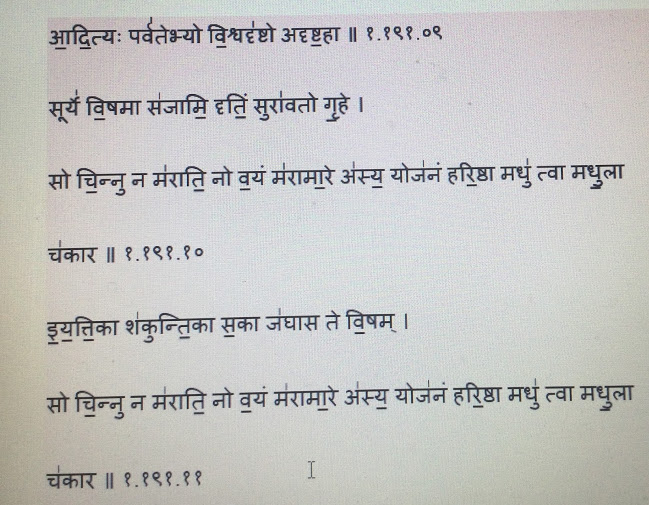 आ॒दि॒त्यः पर्व॑तेभ्यो वि॒श्वदृ॑ष्टो अदृष्ट॒हा ॥ १.१९१.०९
सूर्ये॑ वि॒षमा स॑जामि॒ दृतिं॒ सुरा॑वतो गृ॒हे ।
सो चि॒न्नु न म॑राति॒ नो व॒यं म॑रामा॒रे अ॑स्य॒ योज॑नं हरि॒ष्ठा मधु॑ त्वा मधु॒ला
च॑कार ॥ १.१९१.१०
इ॒य॒त्ति॒का श॑कुन्ति॒का स॒का ज॑घास ते वि॒षम् ।
सो चि॒न्नु न म॑राति॒ नो व॒यं म॑रामा॒रे अ॑स्य॒ योज॑नं हरि॒ष्ठा मधु॑ त्वा मधु॒ला
च॑कार ॥ १.१९१.११